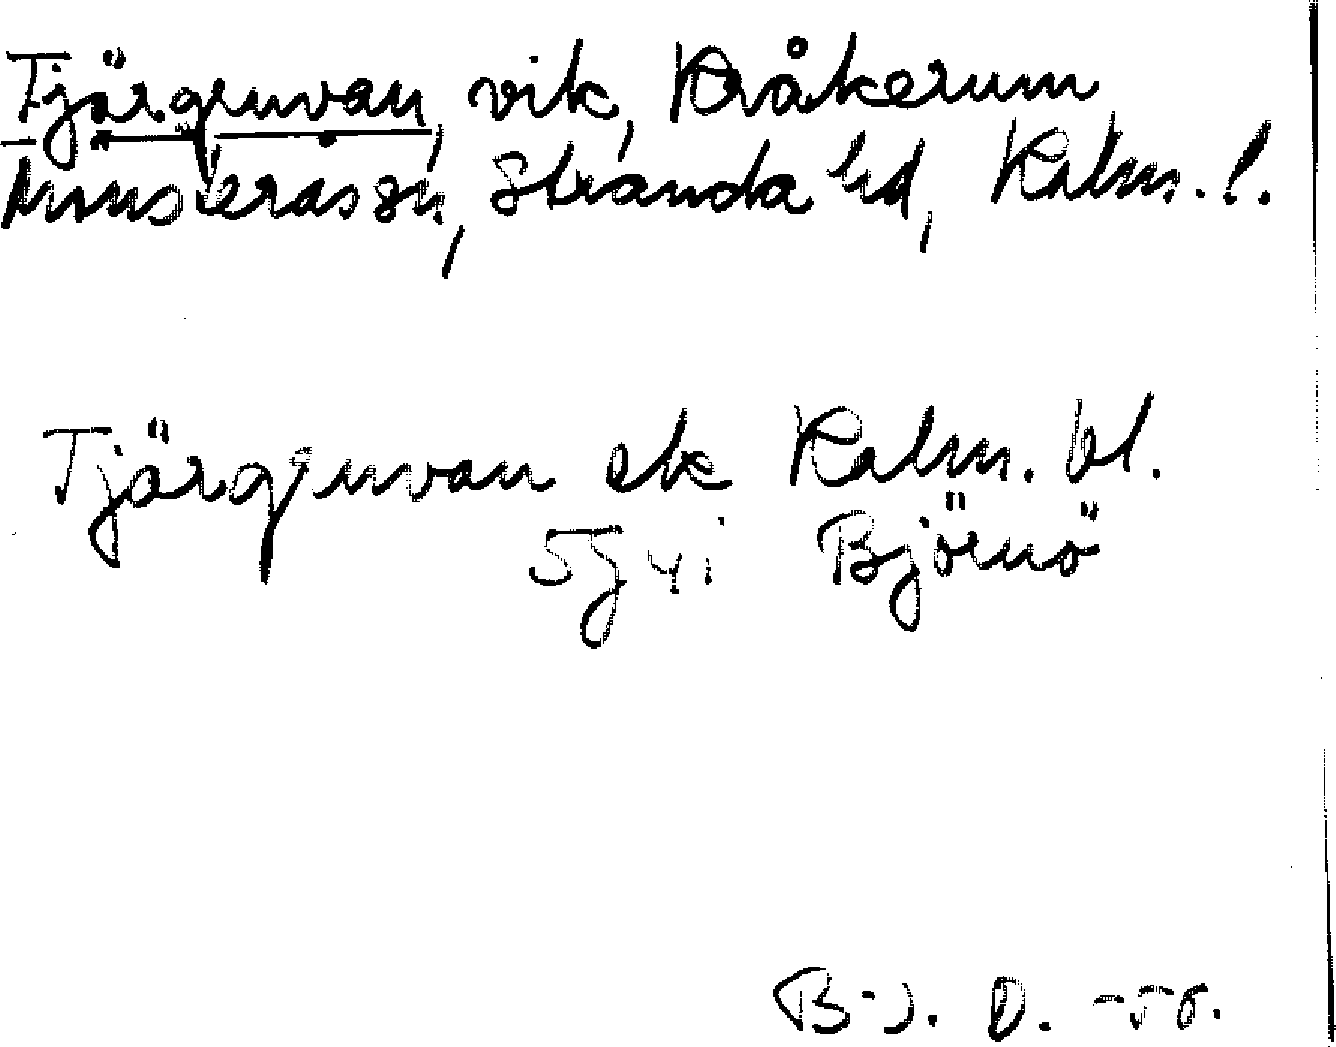 Tjärgruvan, vik, Kråkerum,
Mönsterås sn, Stranda hd, Kalm. l.
Tjärgruvan ek Kalm. bl.
5g4i Björnö
B-J. D. -56.